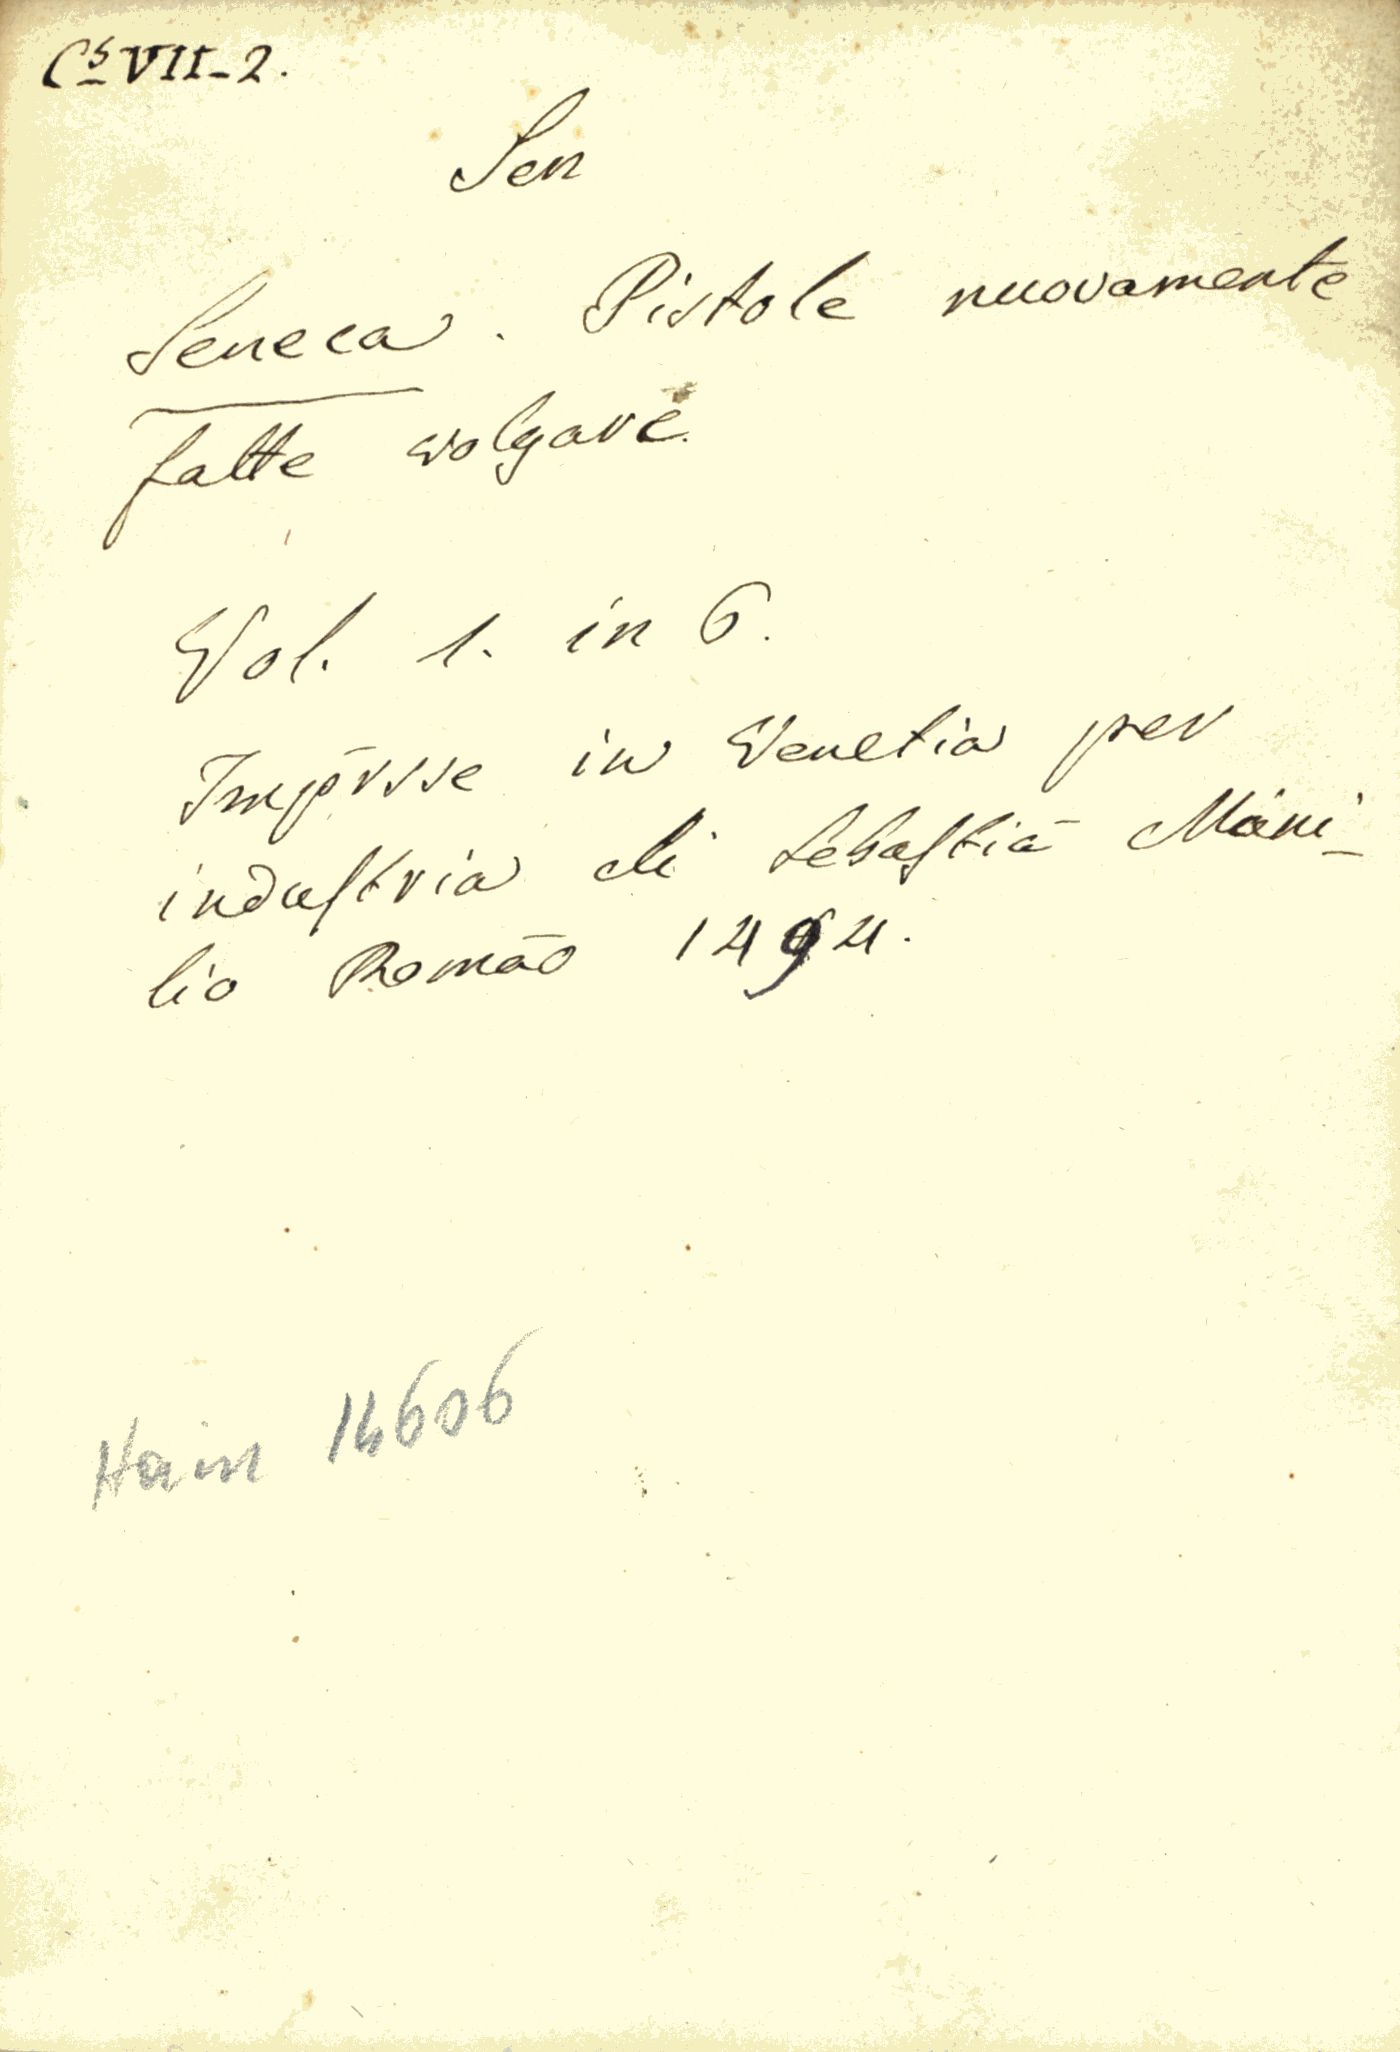 Cs VII-2.
Sen
Seneca. Pistole nuovamente
fatte volgare.
Vol. 1. in 6.
Imp̄rsse in Venetia per
induſtria di Sebaſtiā Mani-
lio Romāo 1494.
Hain 14606